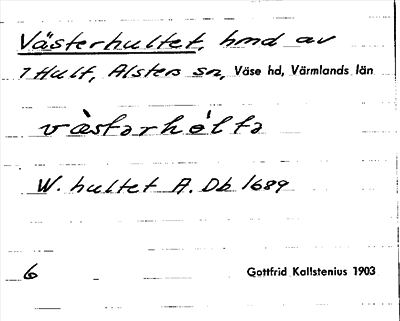 Västerhultet, hmd av
1 Hult, Alsters sn, Väse hd, Värmlands län
vàstərhéltə
W. hultet A. Db 1689
6 Gottfrid Kallstenius 1903